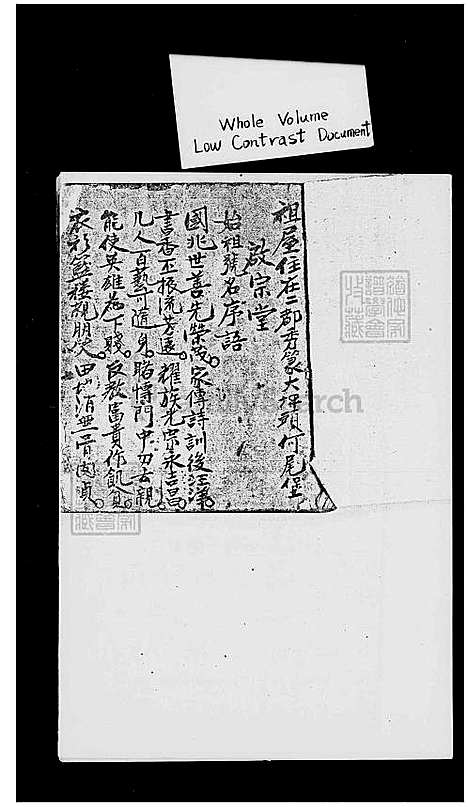 Whole Volume
Low Contrast Document
祖屋住在二都秀象大坪頭何尾堡
啟宗堂
始祖號名序語
國兆世善光榮 家傳詩訓後
書香 根流芳遠 耀族光宗永吉昌
凡人百藝可隨身 賭博門中勿去親
能使英雄為下賤 反教富貴作飢貧
衣衫藍褸親朋笑 田 消無骨肉